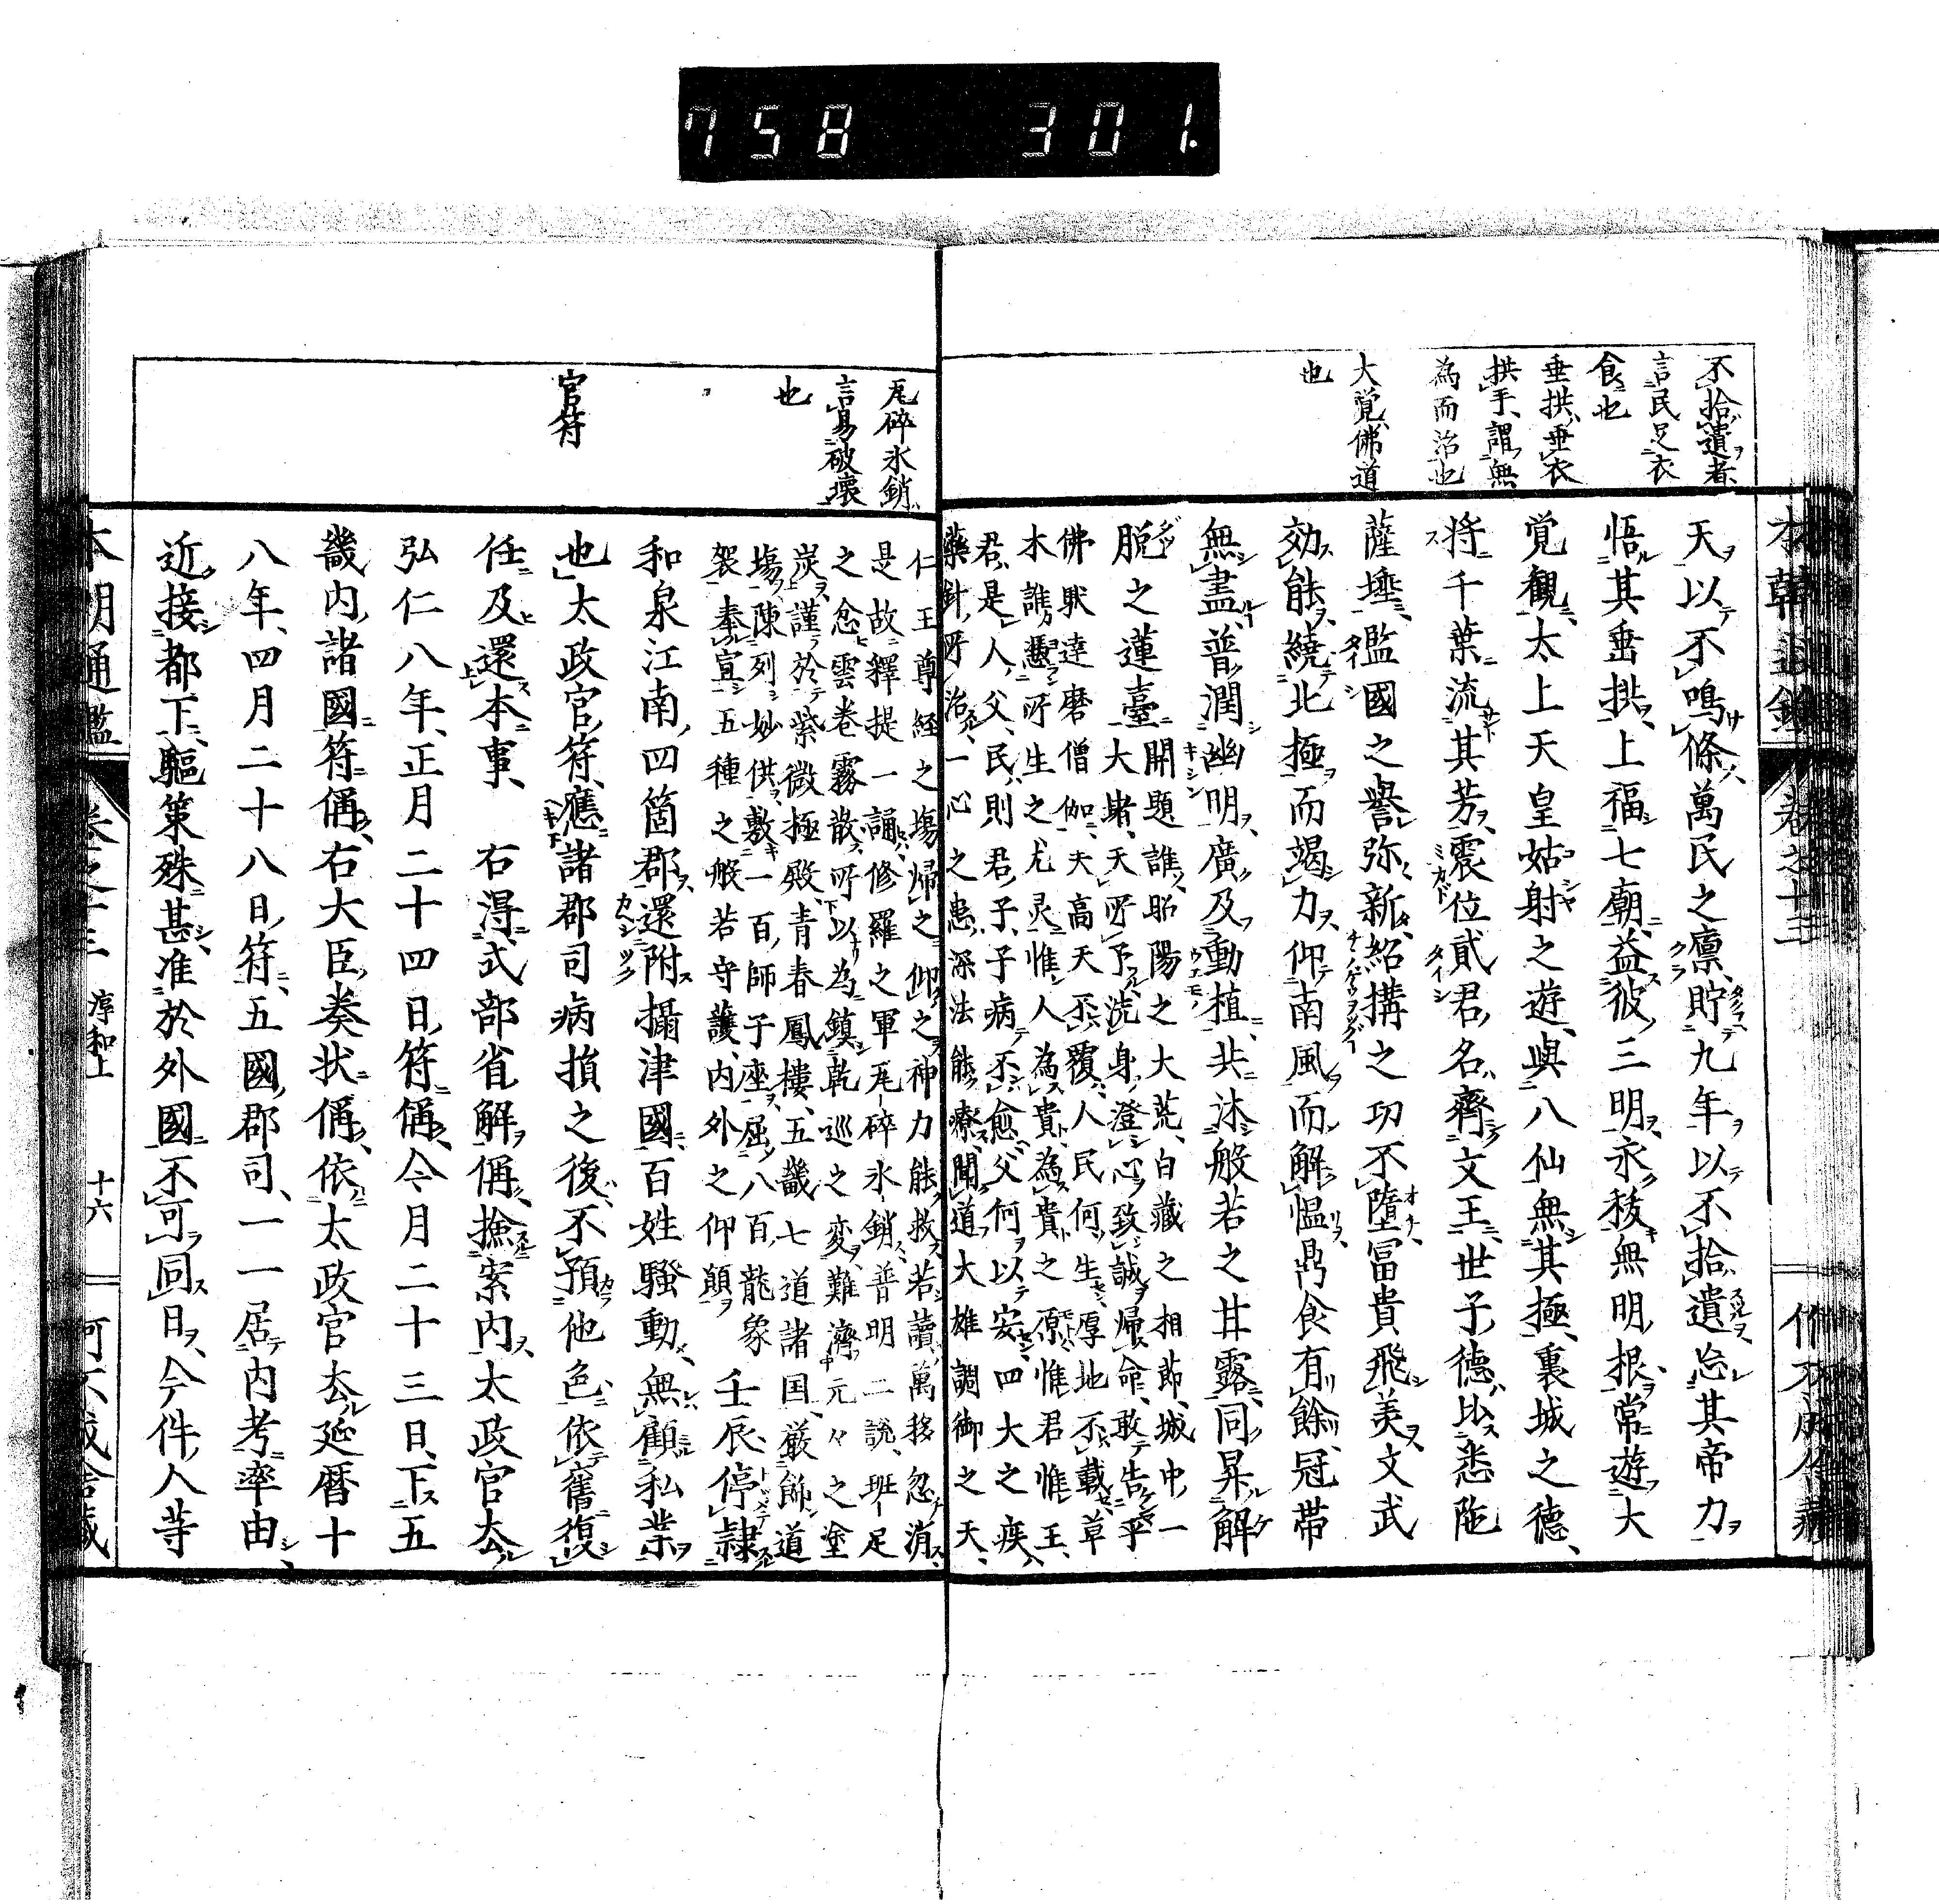 758 301.
不拾遺者
言民足衣
食也
垂拱垂衣
拱手謂無
為而治也
大覚佛道
也
天以不鳴條萬民之廪貯九年以不拾遺怠其帝力
悟其垂拱上福七廟益彼三明永秡無明根常遊大
覚觀太上天皇姑射之遊與八仙無其極裏城之德
将千葉流其芳震位貳君名齊文王世子德比悉陁
薩埵監國之譽弥新紹搆之功不墮冨貴飛美文武
効能繞北極而竭力仰南風而解慍鼎食有餘冠帯
無盡普潤幽明廣及動植共沐般若之甘露同昇解
脱之蓮臺
開題誰昭陽之大荒白藏之相莭城中一
大覩天所下洗身澄心致誠歸命敢告乎
佛馱達磨僧伽夫高天丕覆人民何生厚地丕載草
木誰憑所生之尤灵惟人為貴為貴之源惟君惟王
君是人父民則君子子病丕愈父何以安四大之疾
藥針所治一心之患深法能療聞道大雄調御之天
瓦碎氷銷
言易破壊
也
官符
仁王尊經之塲歸之仰之神力能救若讀萬移忽消
是故釋提一誦修羅之軍瓦碎氷銷普明二說班足
之忿雲巻霧散所以為鎮乾巡之変難濟元々之塗
炭謹於紫微極殿青春鳳樓五畿七道諸国嚴飾道
塲陳列妙供敷一百師子座屈八百龍象
袈奉宣五種之般若守護内外之仰願
壬辰停隷
和泉江南四箇郡還附攝津國百姓騷動無顧私業
也太政官符應諸郡司病損之後不預他色依舊復
任及還本事　右得式部省解偁撿案内太政官去
弘仁八年正月二十四日符偁今月二十三日下五
畿内諸國符偁右大臣奏状偁依太政官去延暦十
八年四月二十八日符五國郡司一一居内考率由
近接都下驅策殊甚准於外國不可同日今件人等
本朝通鑑　卷之十三　淳和上　十六